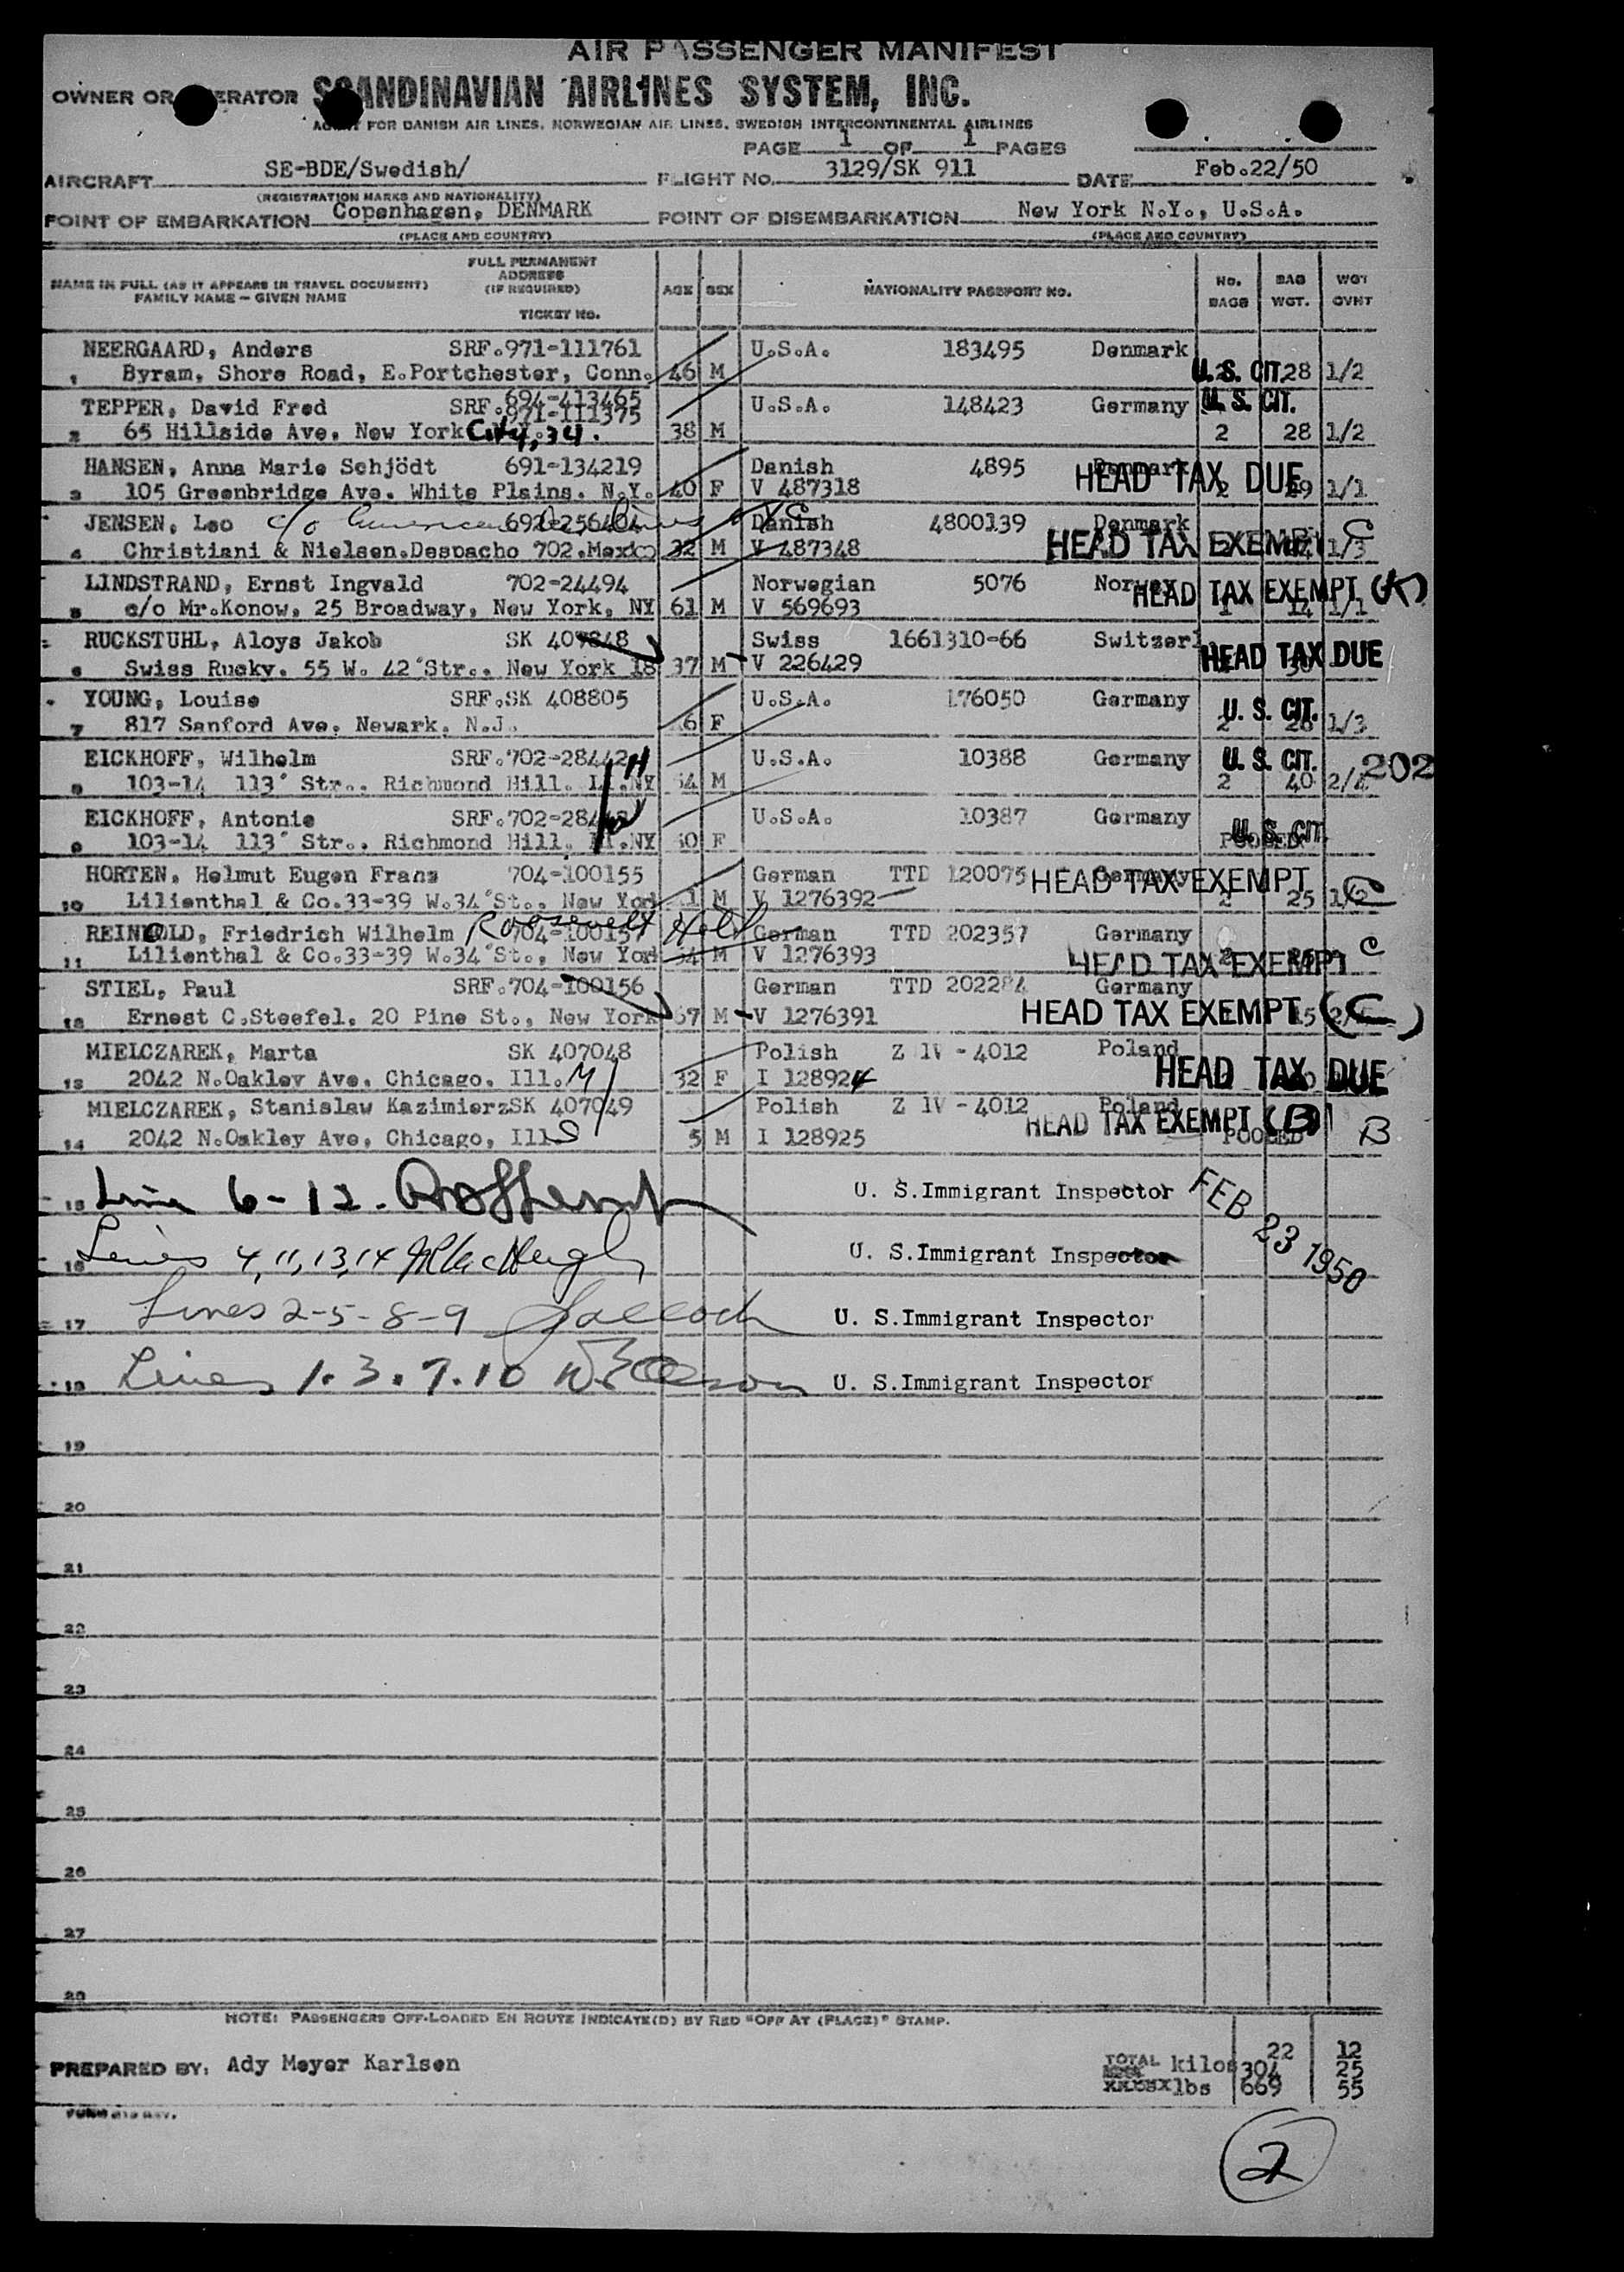 AIR PASSENGER MANIFEST
OWNER OR OPERATOR SCANDINAVIAN AIRLINES SYSTEM, INC.
AGENT FOR DANISH AIR LINES, NORWEGIAN AIR LINES, SWEDISH INTERCONTINENTAL AIRLINES
PAGE 1 OF 1 PAGES
AIRCRAFT SE-BDE/Swedish/ FLIGHT No. 3129/SK 911 DATE Feb.22/50
(REGISTRATION MARKS AND NATIONALITY)
POINT OF EMBARKATION Copenhagen, DENMARK POINT OF DISEMBARKATION New York N.Y., U.S.A.
(PLACE AND COUNTRY) (PLACE AND COUNTRY)
NAME IN FULL (AS IT APPEARS IN TRAVEL DOCUMENT) FAMILY NAME - GIVEN NAME FULL PERMANENT ADDRESS (IF REQUIRED) TICKET No. AGE SEX NATIONALITY PASSPORT NO. No. BAGS BAG WGT. WGT OVHT
NEERGAARD, Anders SRF.971-111761 U.S.A. 183495 Denmark
1 Byram, Shore Road, E.Portchester, Conn. 46 M U. S. CIT. 28 1/2
694-413465
TEPPER, David Fred SRF.971-111375 U.S.A. 148423 Germany U. S. CIT.
2 65 Hillside Ave, New York City, 34. 38 M 2 28 1/2
HANSEN, Anna Marie Schjödt 691-134219 Danish 4895 Denmark HEAD TAX DUE
3 105 Greenbridge Ave. White Plains. N.Y. 40 F V 487318 2 1/1
JENSEN, Leo c/o Danish 4800139 Denmark
4 Christiani & Nielsen.Despacho 702.Mexico 32 M V 487348 HEAD TAX EXEMPT C 1/3
LINDSTRAND, Ernst Ingvald 702-24494 Norwegian 5076 Norway
5 c/o Mr.Konow, 25 Broadway, New York, NY 61 M V 569693 HEAD TAX EXEMPT (K) 1 14 1/1
RUCKSTUHL, Aloys Jakob SK 407848 Swiss 1661310-66 Switzerl
6 Swiss Rucky. 55 W. 42 Str.. New York 18 37 M V 226429 HEAD TAX DUE
YOUNG, Louise SRF.SK 408805 U.S.A. 176050 Germany U. S. CIT.
7 817 Sanford Ave, Newark, N.J. 6 F 2 28 1/3
EICKHOFF, Wilhelm SRF.702-28442 H U.S.A. 10388 Germany U. S. CIT. 202
8 103-14 113 Str.. Richmond Hill. NY 54 M 2 40 2/4
EICKHOFF, Antonie U.S.A. 10387 Germany U. S. CIT.
9 103-14 113 Str.. Richmond Hill, NY F POOLED
HORTEN, Helmut Eugen Franz 704-100155 German TTD 120075 Germany HEAD TAX EXEMPT C
10 Lilienthal & Co.33-39 W.34 St., New York M V 1276392 2 25 1/2
REINHOLD, Friedrich Wilhelm 704-100157 Roosevelt Hotl German TTD 202357 Germany
11 Lilienthal & Co.33-39 W.34 St., New York 54 M V 1276393 HEAD TAX EXEMPT C
STIEL, Paul SRF.704-100156 German TTD 202284 Germany
12 Ernest C.Steefel, 20 Pine St., New York 67 M V 1276391 HEAD TAX EXEMPT (C)
MIELCZAREK, Marta SK 407048 Polish Z IV - 4012 Poland
13 2042 N.Oakley Ave, Chicago, Ill. M 32 F I 128924 HEAD TAX DUE
MIELCZAREK, Stanislaw Kazimierz SK 407049 Polish Z IV - 4012 Poland HEAD TAX EXEMPT (B)
14 2042 N.Oakley Ave, Chicago, Ill S 5 M I 128925 POOLED B
15 Line 6-12. U. S.Immigrant Inspector FEB 23 1950
16 Lines 4,11,13,14 U. S.Immigrant Inspector
17 Lines 2-5-8-9 U. S.Immigrant Inspector
18 Lines 1.3.7.10 U. S.Immigrant Inspector
19
20
21
22
23
24
25
26
27
28
NOTE: PASSENGERS OFF-LOADED EN ROUTE INDICATE(D) BY RED "OFF AT (PLACE)" STAMP.
22 12
PREPARED BY: Ady Meyer Karlsen TOTAL kilos 304 25
lbs 669 55
2